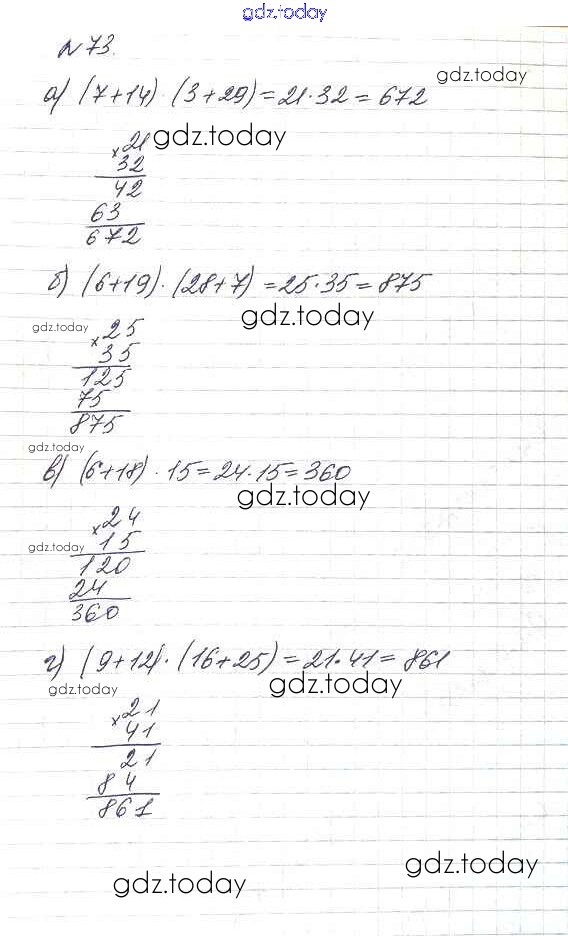 gdz.today
№ 73.
gdz.today
а) (7+14) · (3+29) = 21·32 = 672
gdz.today
× 21
32
42
63
672
б) (6+19) · (28+7) = 25·35 = 875
gdz.today
gdz.today
× 25
35
125
75
875
gdz.today
в) (6+18) · 15 = 24·15 = 360
gdz.today
× 24
gdz.today
15
120
24
360
г) (9+12) · (16+25) = 21·41 = 861
gdz.today
gdz.today
× 21
41
21
84
861
gdz.today
gdz.today